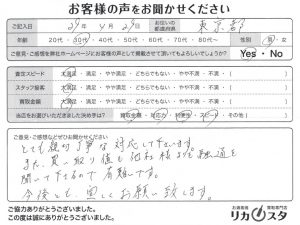 お客様の声をお聞かせください
ご記入日 29年 4月 29日 お住いの都道府県 東京都
年齢 20代・30代・40代・50代・60代・70代・80代～ 性別 男・女
ご意見・ご感想を弊社ホームページにお客様の声として掲載させて頂いてもよろしいでしょうか? Yes・No
査定スピード 大満足・満足・どちらでもない・やや不満・不満
スタッフ接客 大満足・満足・どちらでもない・やや不満・不満
買取金額 大満足・満足・どちらでもない・やや不満・不満
当店をお選びいただきました決め手は? 買取金額・対応力・利便性・スピード・その他( )
ご意見・ご感想などぜひお聞かせください
とても親切丁寧な対応して下さいます。
また、買い取り値も他社様よりも融通を
聞いて下さるので有難いです。
今後とも、宜しくお願い致します。
ご協力ありがとうございました。
この度は誠にありがとうございました。
お酒買取 買取専門店
リカスタ